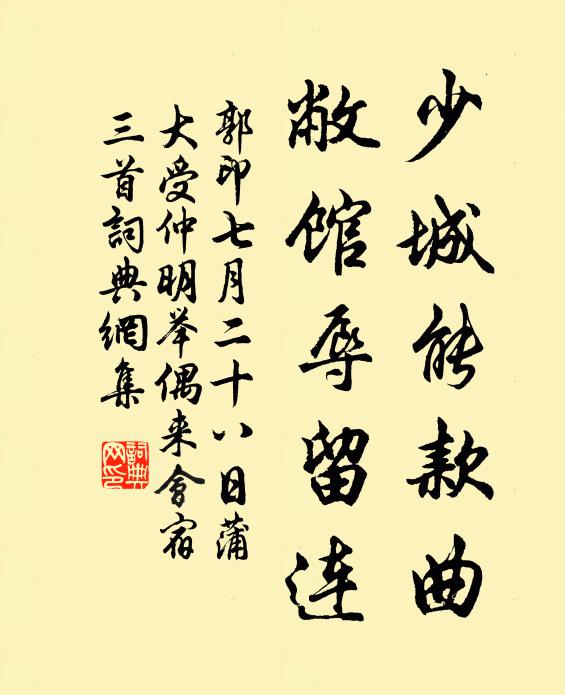 少城能款曲
敝馆辱留连
郭印七月二十八日蒲
大受仲明举偶来會宿
三首詞典網集
詞典
网印